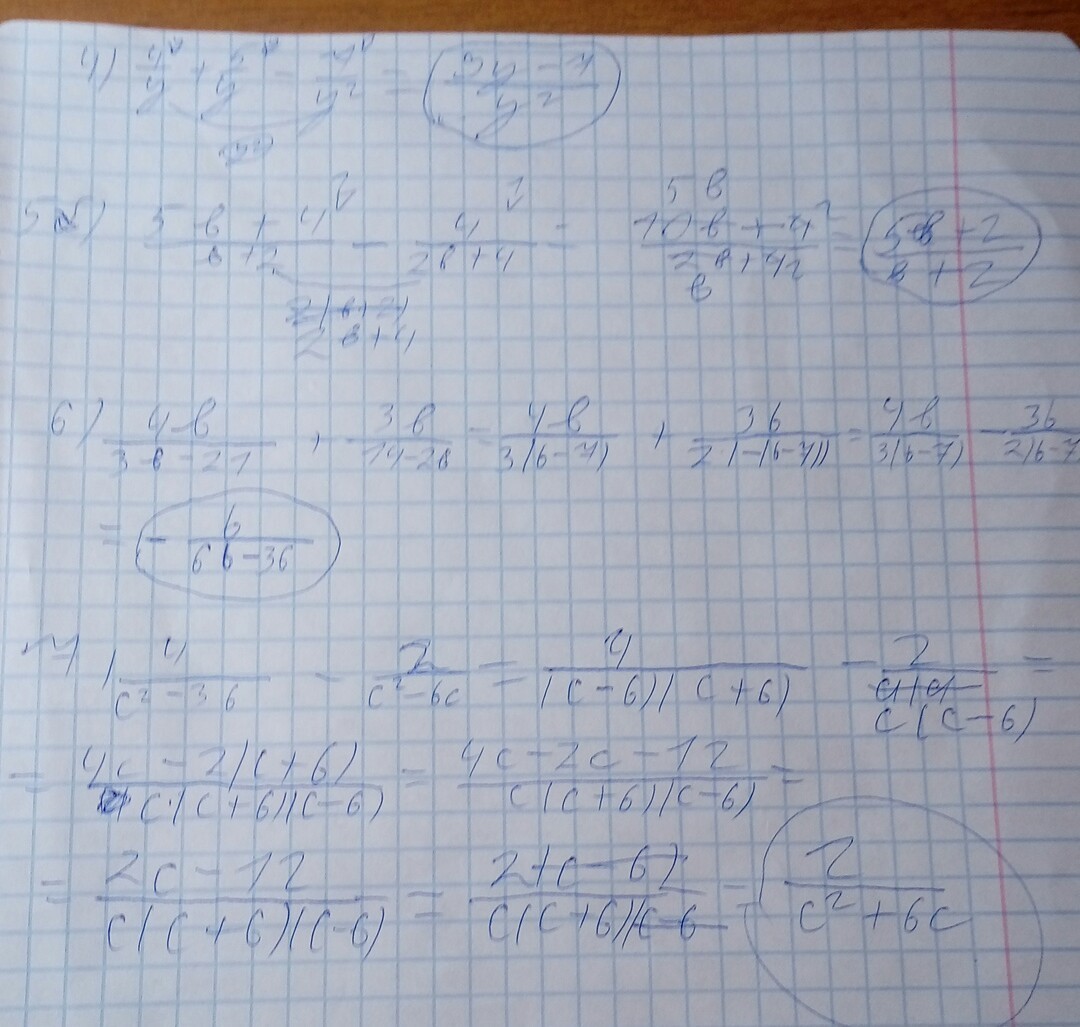 4) 4/y + 5/y - 7/y² = (3y - 7)/y²
5) (5b + 4)/(b + 2) - 4/(2b + 4) = (10b + 4)/(2b + 4) = (5b + 2)/(b + 2)
2(b + 2)
2b + 4
6) 4b/(3b - 21) + 3b/(14 - 2b) = 4b/(3(b - 7)) + 3b/(2·(-(b - 7))) = 4b/(3(b - 7)) - 3b/(2(b - 7
= - b/(6b - 36)
7) 4/(c² - 36) - 2/(c² - 6c) = 4/((c - 6)(c + 6)) - 2/(c(c - 6)) =
= (4c - 2(c + 6))/(c·(c + 6)(c - 6)) = (4c - 2c - 12)/(c(c + 6)(c - 6)) =
= (2c - 12)/(c(c + 6)(c - 6)) = 2(c - 6)/(c(c + 6)(c - 6 = 2/(c² + 6c)